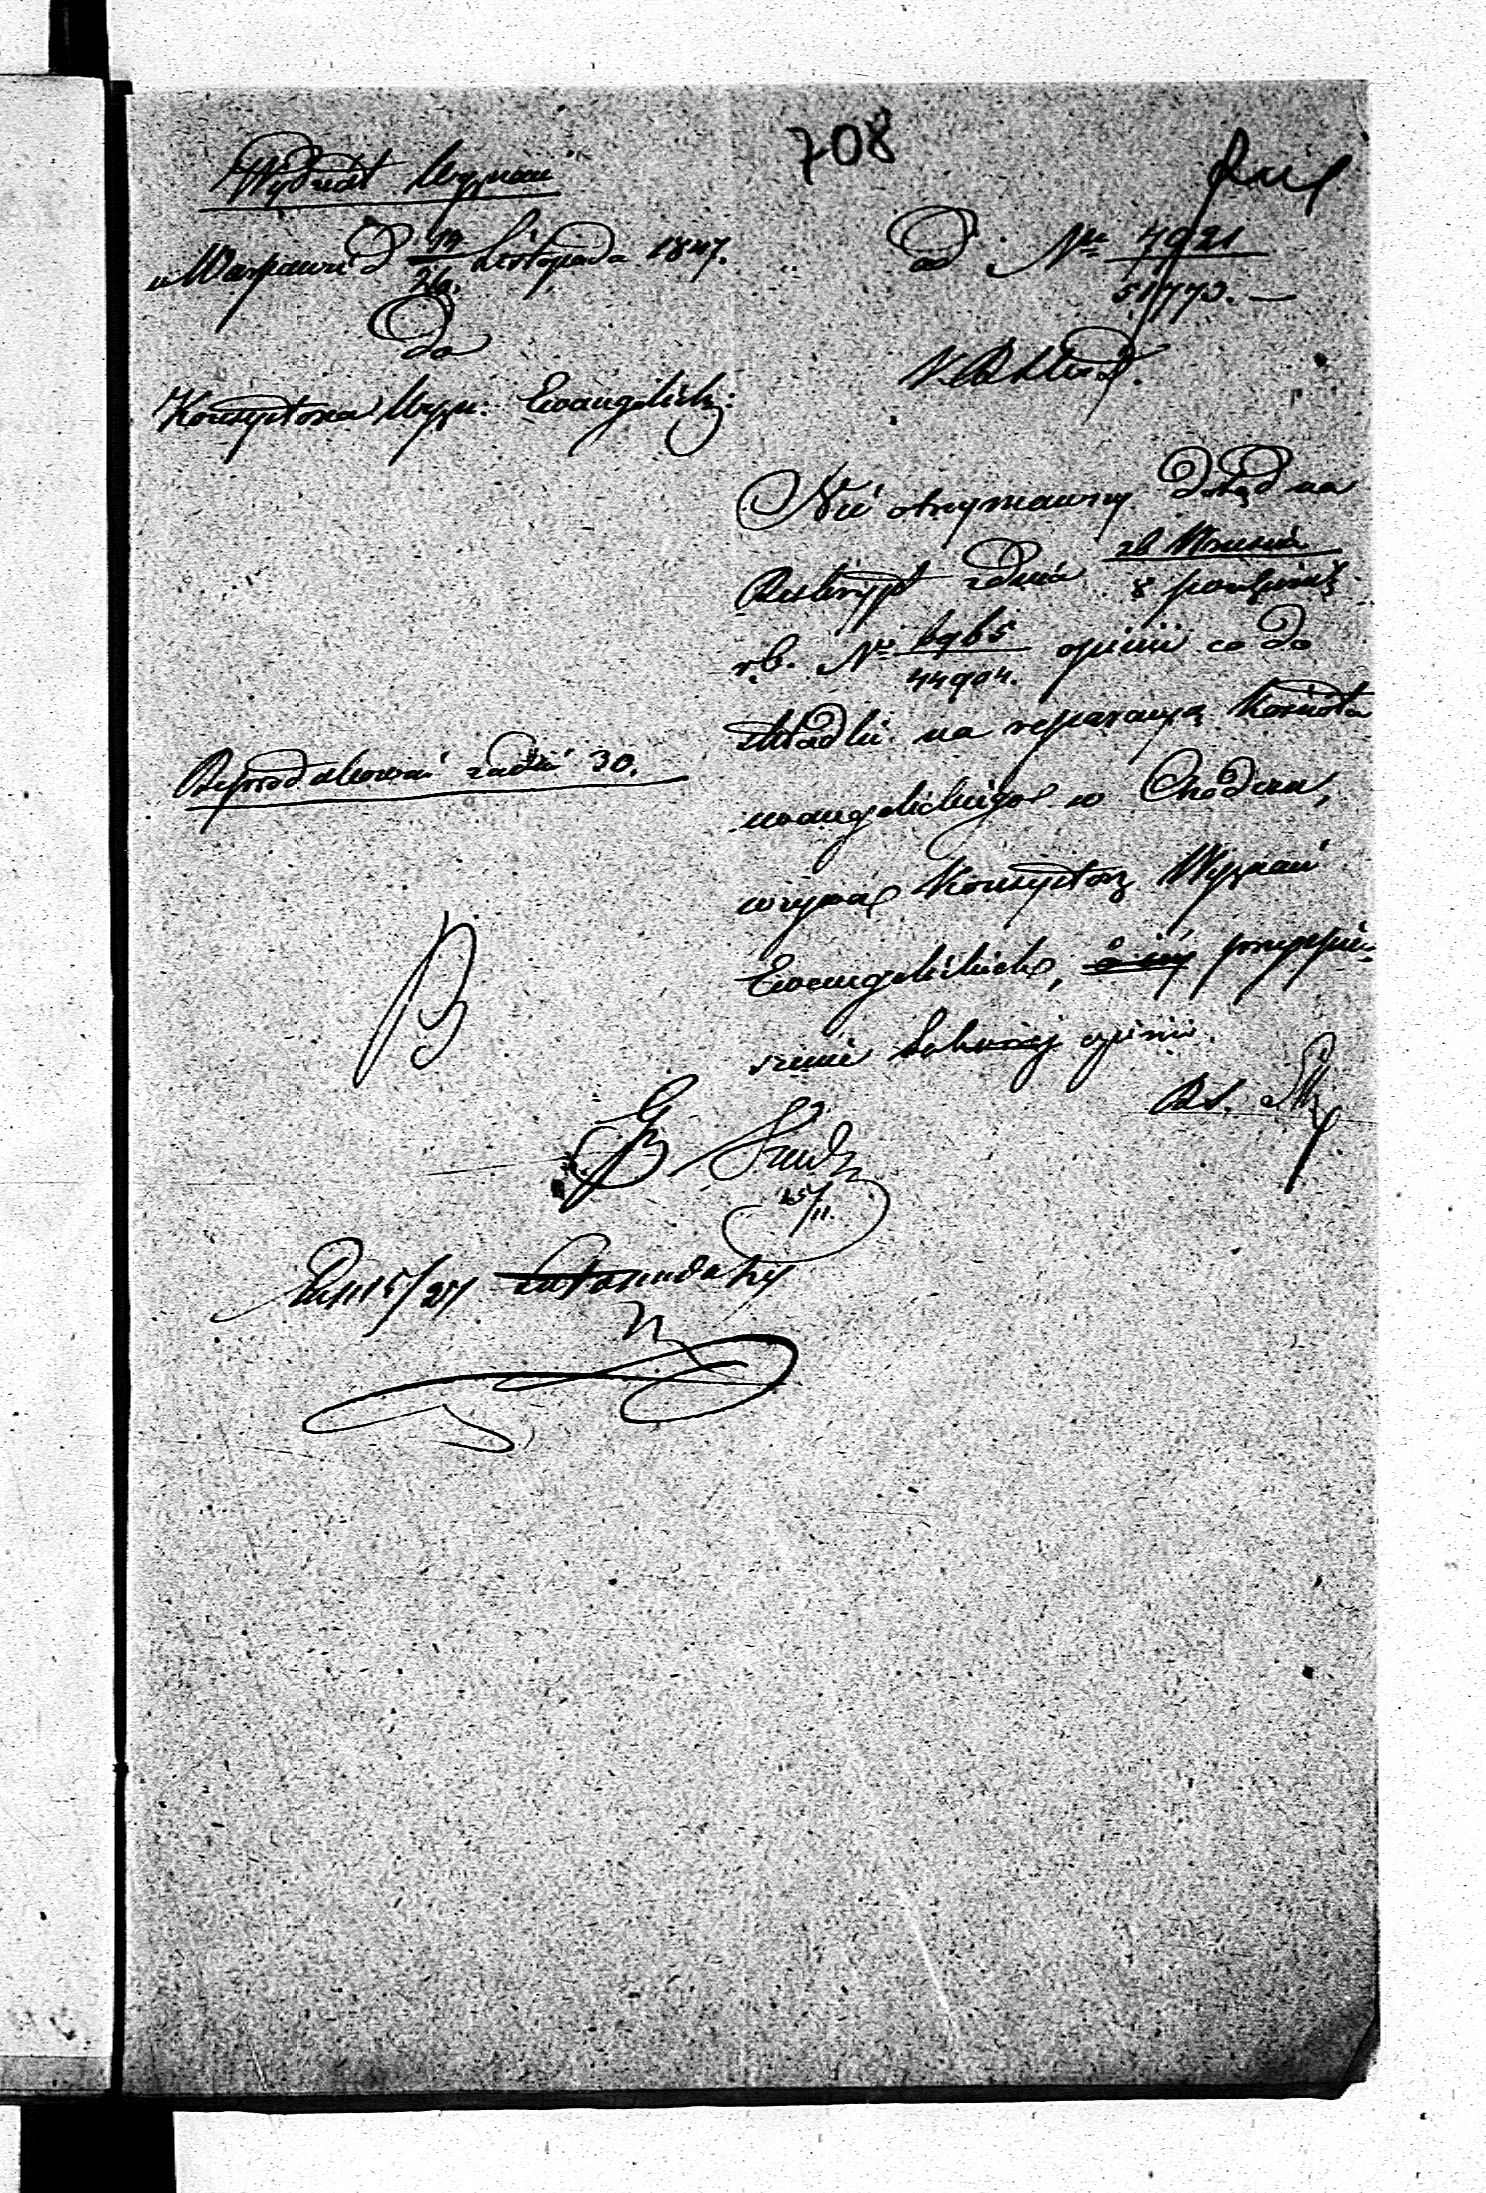 708
Wydział Wyznań
w Warszawie d 14/26 Listopada 1847.
Do
Konsystorza Wyzn: Ewangelick:
ad Nr 7921/51773. —
Nie otrzymawszy dotąd na
Reskrypt z dnia 26 Września/8 Paźdź:
r.b. Nr 6965/44904. opinii co do
składki na reparacyą Kościoła
ewangelickiego w Chodczu,
wzywa Konsystorz Wyznań
Ewangelickich, o przyspie-
szenie takowej opinii.
za dni 30.
B
15/11.
15/27